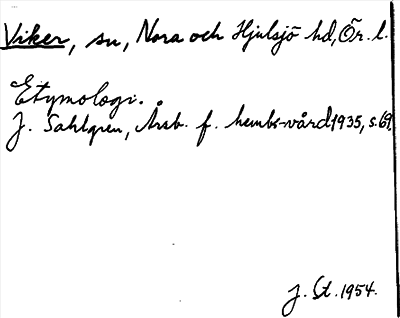 Viker, sn, Nora och Hjulsjö hd, Ör. l.
Etymologi.
J. Sahlgren, Årsb. f. hembs-vård 1935, s. 69.
J. St. 1954.